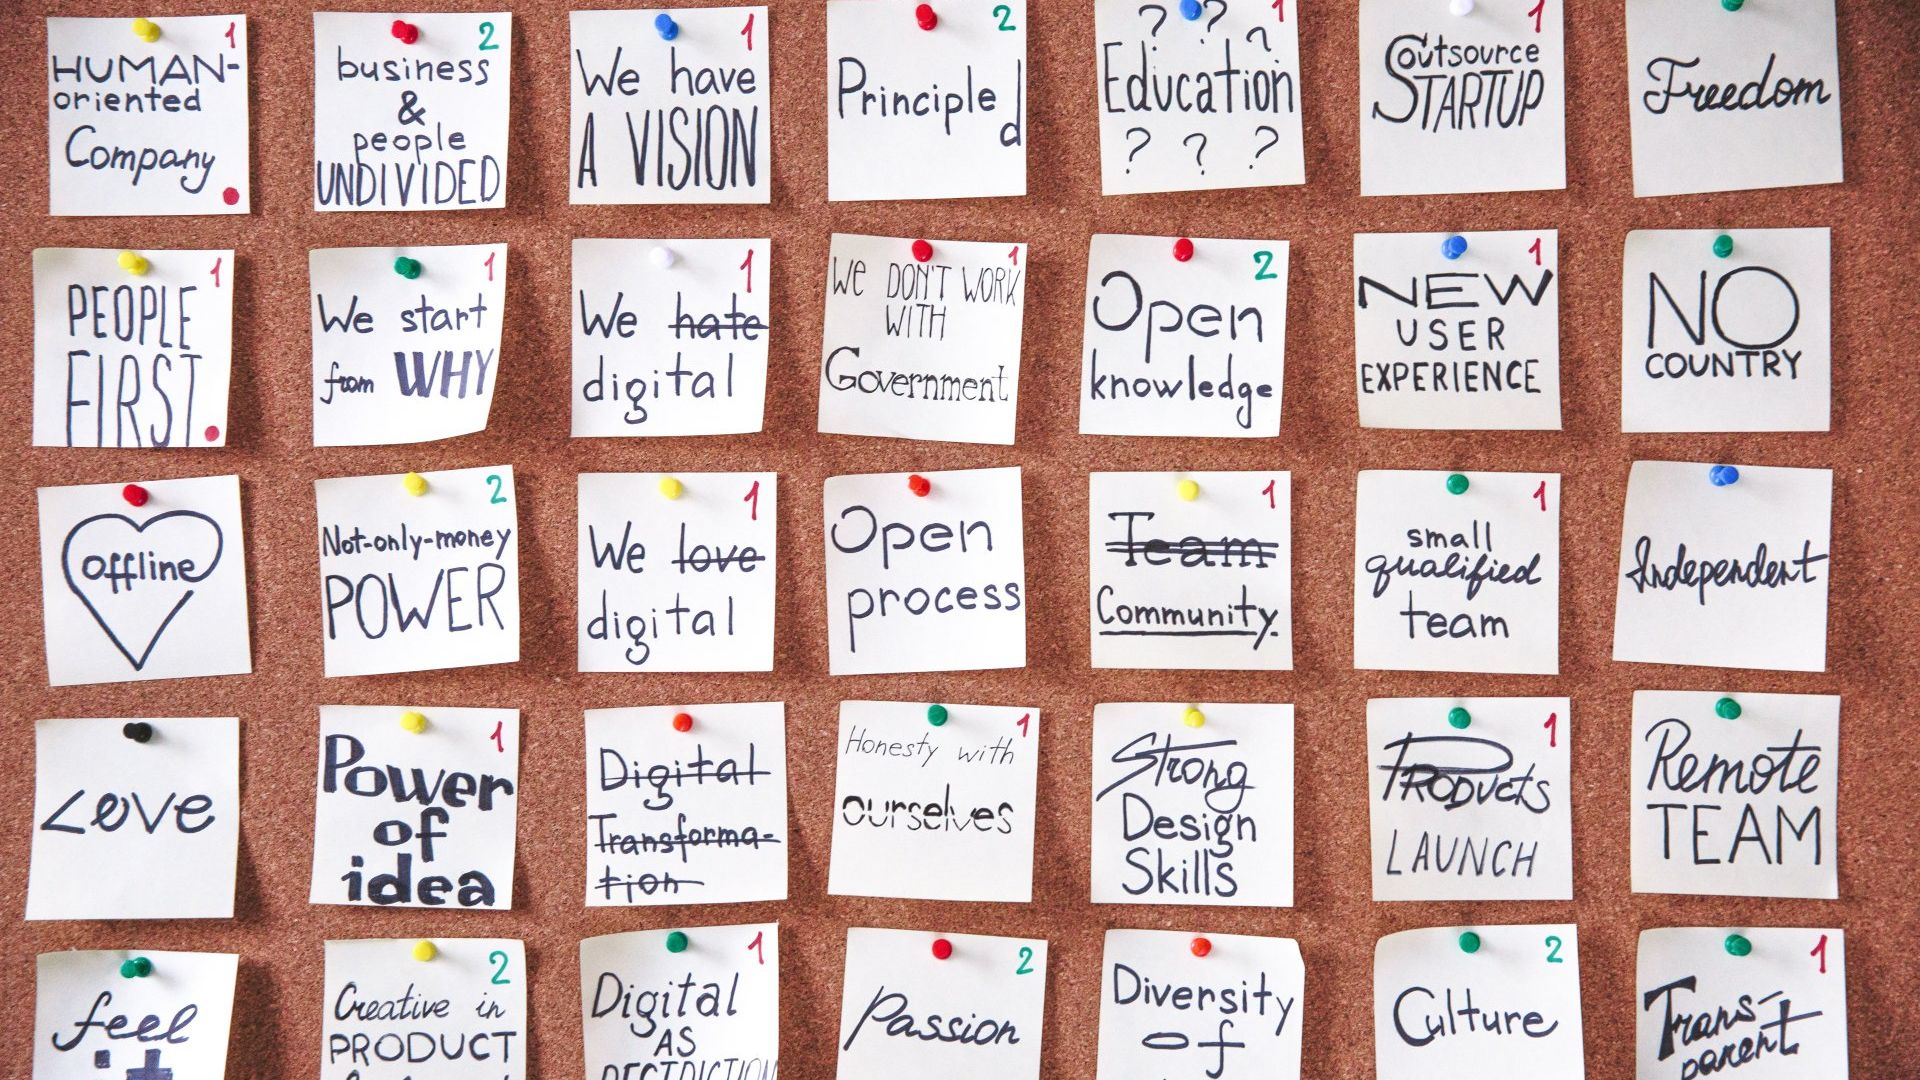 1
HUMAN-
oriented
Company
2
business
&
people
UNDIVIDED
1
We have
A VISION
2
Principled
1
? ? ?
Education
? ? ?
1
Outsource
STARTUP
Freedom
1
PEOPLE
FIRST
1
We start
from WHY
1
We hate
digital
1
WE DON'T WORK
WITH
Government
2
Open
knowledge
1
NEW
USER
EXPERIENCE
NO
COUNTRY
offline
2
Not-only-money
POWER
1
We love
digital
Open
process
1
Team
Community.
1
small
qualified
team
Independent
Love
1
Power
of
idea
Digital
Transforma-
tion
1
Honesty with
ourselves
Strong
Design
Skills
1
PRODUCTS
LAUNCH
Remote
TEAM
feel
it
2
Creative in
PRODUCT
1
Digital
AS
2
Passion
Diversity
of
2
Culture
1
Trans-
parent